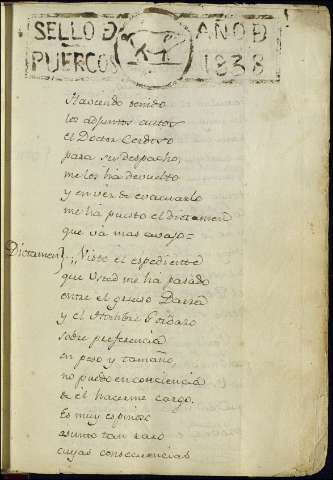 SELLO D AÑO D
PUERCOS 1838
Haviendo tenido
los adjuntos autos
el Doctor Cerdoso
para su despacho,
me los há devuelto
y en véz de evacuarlo
me ha puesto el dictamen
que vá mas avajo=
Dictamen} Visto el espediente
que Usted me há pasado
entre el grueso Barra
y el Hombre Gordazo
sobre preferencia
en peso y tamaño,
no puedo en conciencia
de él hacerme cargo.
Es muy espinoso
asunto tan raro
cuyas consecuencias